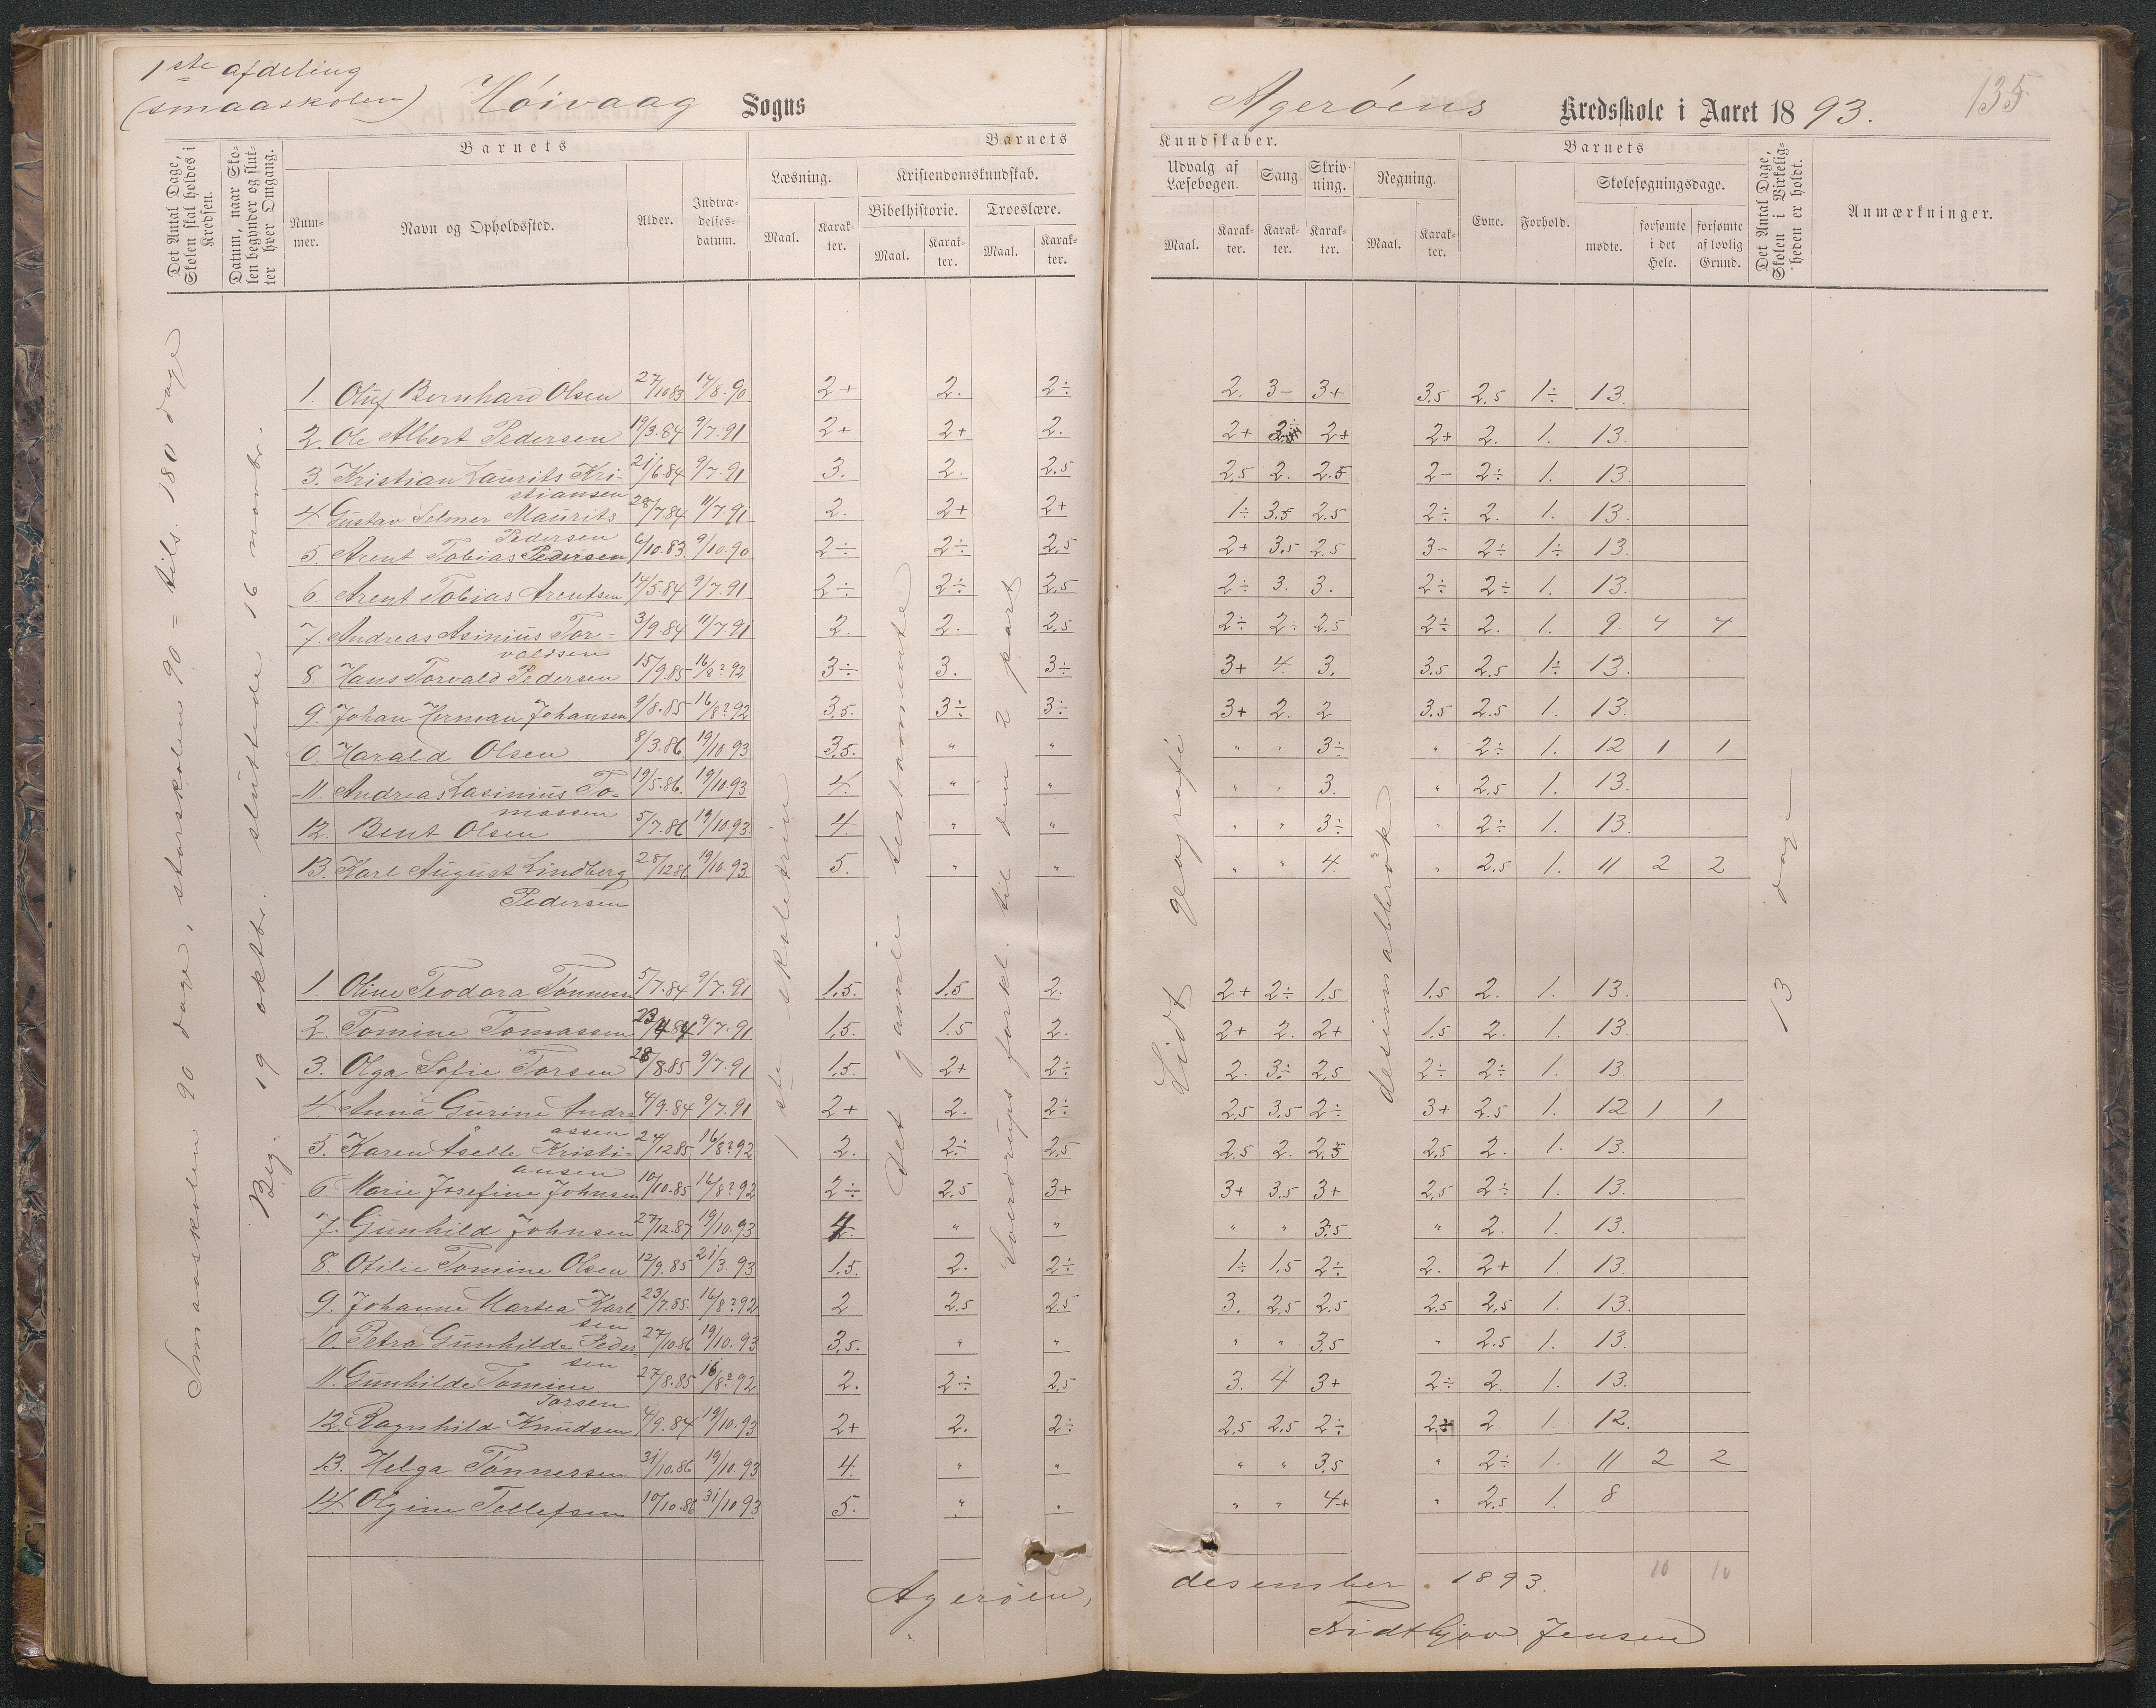 1ste afdeling
(smaaskolen) Høivaag Sogns
Agerøens Kredsskole i Aaret 1893. 135
Det Antal Dage, Skolen skal holdes i Kredsen.
Datum, naar Skolen begynder og slutter hver Omgang.
Barnets
Nummer.
Navn og Opholdssted.
Alder.
Indtrædelsesdatum.
Barnets
Læsning.
Maal.
Karakter.
Kristendomskundskab.
Bibelhistorie.
Maal.
Karakter.
Troeslære.
Maal.
Karakter.
Kundskaber.
Udvalg af Læsebogen.
Maal.
Karakter.
Sang.
Karakter.
Skrivning.
Karakter.
Regning.
Maal.
Karakter.
Barnets
Evne.
Forhold.
Skolesøgningsdage.
mødte.
forsømte i det Hele.
forsømte af lovlig Grund.
Det Antal Dage, Skolen i Virkeligheden er holdt.
Anmærkninger.
Smaaskolen 90 dage, storskolen 90 = tils. 180 dage
Beg. 19 oktbr. sluttede 16 novbr.
1ste skoletrin
Det gamle testamente
Sverdrups forkl. til den 2 part
Lidt geografi
desimalbrøk
13 dage
1. Oluf Bernhard Olsen 27/10 83 14/8.90 2+ 2. 2÷ 2. 3- 3+ 3.5 2.5 1÷ 13.
2. Ole Albert Pedersen 19/3.84 9/7.91 2+ 2+ 2. 2+ 2+ 2+ 2. 1. 13.
3. Kristian Laurits Kristiansen 21/6.84 9/7.91 3. 2. 2.5 2.5 2. 2.5 2- 2÷ 1. 13.
4. Gustav Selmer Maurits Pedersen 28/7.84 11/7.91 2. 2+ 2+ 1÷ 3.5 2.5 2÷ 2. 1. 13.
5. Arent Tobias Pedersen 6/10.83 9/10.90 2÷ 2÷ 2.5 2+ 3.5 2.5 3- 2÷ 1÷ 13.
6. Arent Tobias Arentsen 14/5.84 9/7.91 2÷ 2÷ 2.5 2÷ 3. 3. 2÷ 2÷ 1. 13.
7. Andreas Asinius Torvaldsen 3/9.84 11/7.91 2. 2. 2.5 2÷ 2÷ 2.5 2÷ 2. 1. 9. 4 4
8 Hans Torvald Pedersen 15/9.85 16/8?92 3÷ 3. 3÷ 3+ 4. 3. 3.5 2.5 1÷ 13.
9. Johan Herman Johansen 9/8.85 16/8?92 3.5. 3÷ 3÷ 3+ 2. 2 3.5 2.5 1. 13.
0. Harald Olsen 8/3.86 19/10.93 3.5. " " " " 3÷ " 2÷ 1. 12 1 1
11. Andreas Lasinius Tomassen 19/5.86. 19/10.93 4. " " " " 3. " 2.5 1. 13.
12. Bent Olsen 5/7.86 19/10.93. 4. " " " " 3÷ " 2÷ 1. 13.
13. Karl August Lindberg Pedersen 28/12 86 19/10.93. 5. " " " " 4. " 2.5 1. 11 2 2
1. Oline Teodora Tønnesen 5/7.84 9/7.91 1.5. 1.5 2. 2+ 2÷ 1.5 1.5 2. 1. 13.
2. Tomine Tomassen 23/4 84 9/7.91 1.5. 1.5 2. 2+ 2. 2+ 1.5 2. 1. 13.
3. Olga Sofie Torsen 28/8.85 9/7.91 1.5. 2+ 2÷ 2. 3÷ 2.5 2÷ 2÷ 1. 13.
4. Anna Gurine Andreassen 4/9.84 9/7.91 2+ 2. 2÷ 2.5 3.5 2÷ 3+ 2.5 1. 12 1 1
5. Karen Åselle Kristiansen 24/12 85 16/8?92 2. 2÷ 2.5 2.5 2. 2.5 2.5 2. 1. 13.
6 Marie Josefine Johnsen 10/10.85 16/8?92 2÷ 2.5 3+ 3+ 3.5 3+ 2.5 2÷ 1. 13.
7. Gunhild Johnsen 27/12.87 19/10.93 4. " " " " 3.5 " 2. 1. 13.
8. Otilie Tomine Olsen 12/9.85 21/3.93 1.5. 2. 2÷ 1÷ 1.5 2÷ 2. 2+ 1. 13.
9. Johanne Martea Karlsen 23/7.85. 16/8?92 2 2.5 2.5 3. 2.5 2.5 2.5 2.5 1. 13.
0. Petra Gunhilde Pedersen 27/10.86 19/10.93 3.5. " " " " 3.5 " 2.5 1. 13.
11. Gunhilde Tomine Torsen 27/8.85 16/8?92 2. 2÷ 2.5 3. 4 3+ 2÷ 2. 1. 13.
12. Ragnhild Knudsen 4/9.84 19/10.93 2+ 2. 2÷ 2.5 2.5 2÷ 2÷ 2. 1. 12.
13. Helga Tønnesen 31/10.86 19/10.93 4. " " " " 3.5 " 2÷ 1. 11 2 2
14. Olgine Tellefsen 10/10.86 31/10 93 5. " " " " 4+ " 2.5 1. 8
10 10
Agerøen, desember 1893.
Fridthjov Jensen